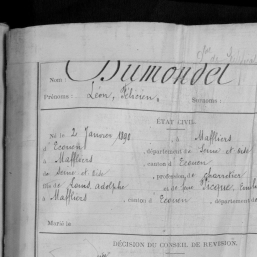 Nom: Dumondel
Prénoms: Léon, Félicien, Surnoms:
ÉTAT CIVIL.
Né le 2 Janvier 1898, à Maffliers
d'Ecouen, département de Seine et Oise
à Maffliers canton d'Ecouen
de Seine et Oise, profession de charretier
fils de Louis Adolphe et de
à Maffliers canton d'Ecouen, département de
Marié le
DÉCISION DU CONSEIL DE REVISION.